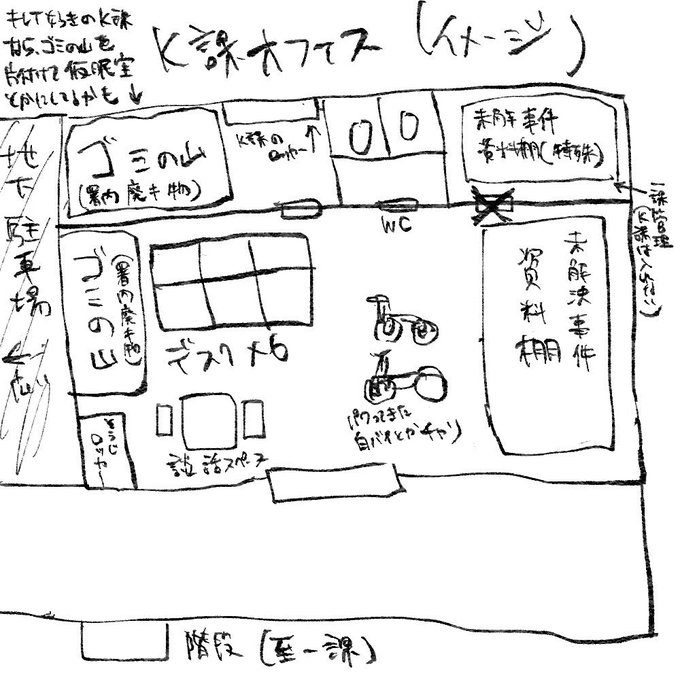 K課オフィス (イメージ)
なら、ゴミの山を
片付けて仮眠室
とかにしてるかも ↓
ゴミの山
(署内廃キ物)
K課の
ロッカー
未解事件
資料棚(特殊)
一課管理
(K課は入れない)
WC
地下駐車場
ゴミの山
(署内廃キ物)
デスク×6
未解決事件
資料棚
パクってきた
自バイとかチャリ
そうじ
ロッカー
談話スペース
階段 (至一課)